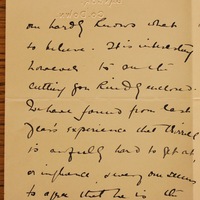 can hardly know what
to believe. It is interesting
however to note
cutting you kindly enclosed.
We have found from last
year's experience that
is awfully hard to get at,
or influence
to agree that he is the